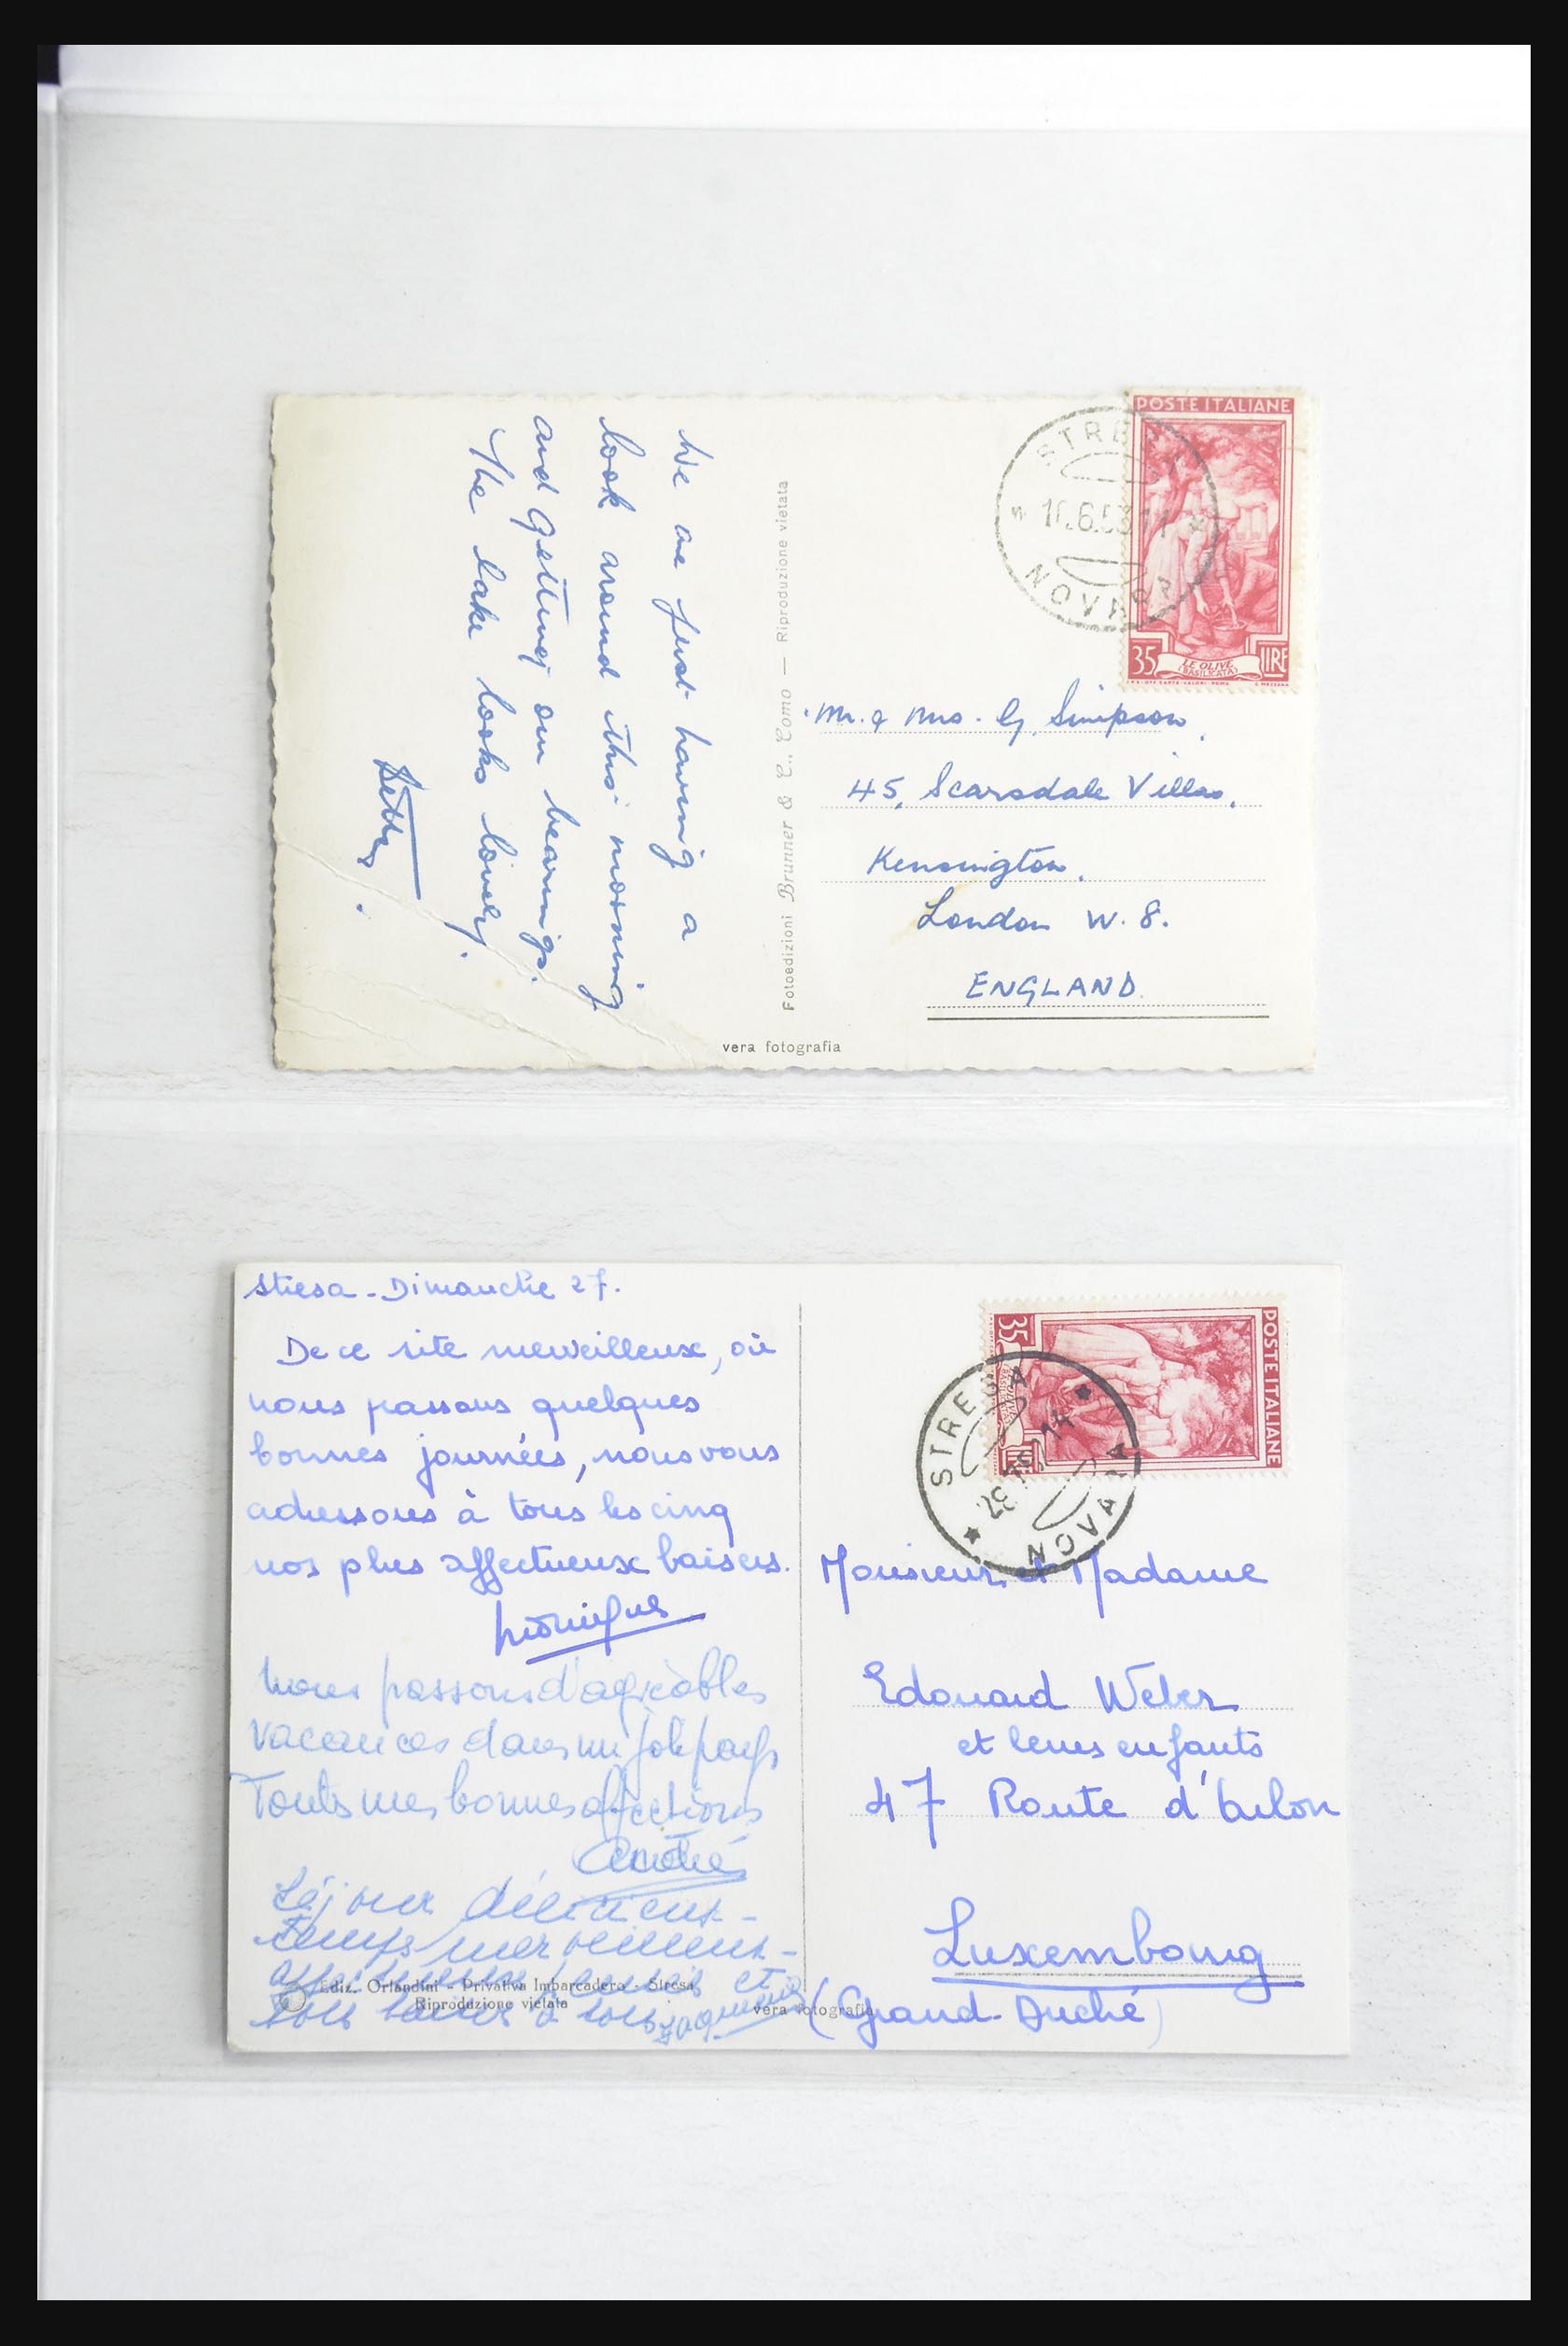 We are just having a
look around this morning
and getting our bearings.
The lake looks lovely.
Betty.
Fotoedizioni Brunner & C., Como — Riproduzione vietata
vera fotografia
POSTE ITALIANE
35 LE OLIVE (BASILICATA) LIRE
STRESA
.6.53
NOVARA
Mr. & Mrs. G. Simpson,
45, Scarsdale Villas,
Kensington,
London W. 8.
ENGLAND
Stresa - Dimanche 27.
De ce site merveilleux, où
nous passons quelques
bonnes journées, nous vous
adressons à tous les cinq
nos plus affectueux baisers.
Monique
Nous passons d'agréables
vacances dans un joli pays
Toutes mes bonnes affections
André
Séjour délicieux -
temps merveilleux -
et
bons baisers à tous
Ediz. Orlandini - Privativa Imbarcadero - Stresa
Riproduzione vietata
vera fotografia
POSTE ITALIANE
35
STRESA
NOVARA
Monsieur et Madame
Edouard Weber
et leurs enfants
47 Route d'Arlon
Luxembourg
(Grand-Duché)